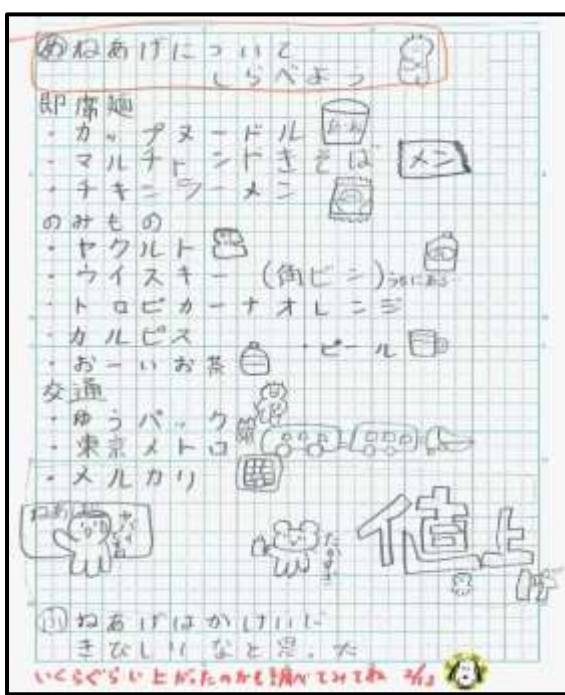 め ねあげについて
しらべよう
即席麺
・カップヌードル
・マルチャンやきそば メン
・チキンラーメン
のみもの
・ヤクルト
・ウイスキー(角ビン)うちにある
・トロピカーナオレンジ
・カルピス ・ビール
・おーいお茶
交通
・ゆうパック
・東京メトロ
・メルカリ
ねあげ
値上げ
ふ ねあげはかけいに
きびしいなと思った
いくらぐらい上がったのかも調べてみてね 2/13